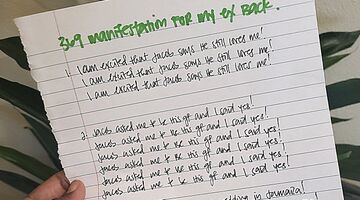 369 manifestation for my ex Back.
1. I am excited that Jacob says He still loves me!
I am excited that Jacob says He still loves me!
I am excited that Jacob says He still loves me!
2. Jacob asked me to be his gf and I said yes!
Jacob asked me to be his gf and I said yes!
Jacob asked me to be his gf and I said yes!
Jacob asked me to be his gf and I said yes!
Jacob asked me to be his gf and I said yes!
Jacob asked me to be his gf and I said yes!
in Jamaica!